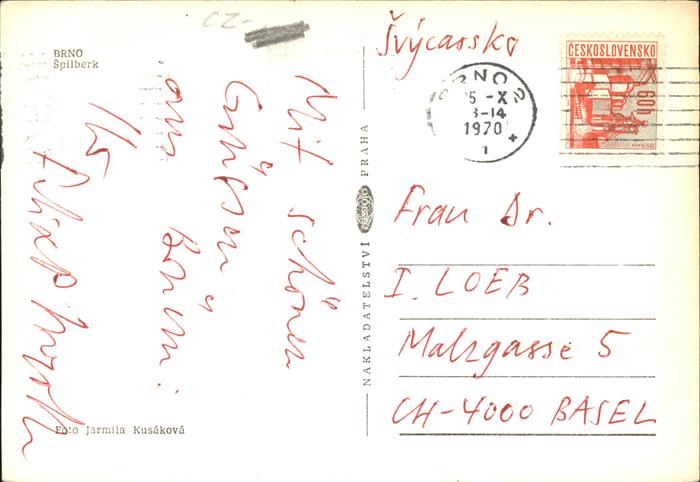 CZ-
BRNO
Špilberk
Mit schönen
Grüssen
aus Brünn:
Ihr
Foto Jarmila Kusáková
NAKLADATELSTVÍ PRAHA
Švýcarsko
BRNO 2
-X
-14
1970
1
ČESKOSLOVENSKO
60h
Frau Dr.
I. LOEB
Malzgasse 5
CH-4000 BASEL